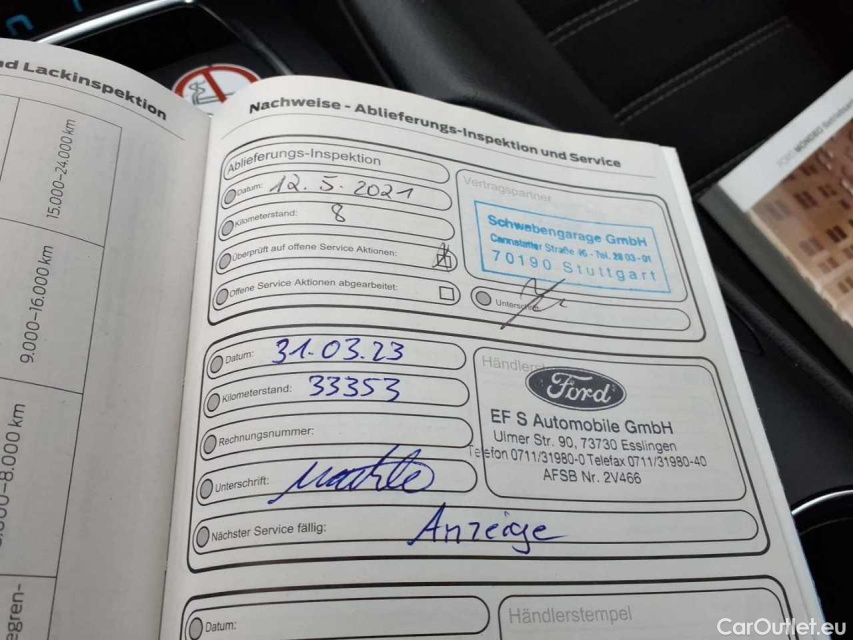 nd Lackinspektion
15.000–24.000 km
9.000–16.000 km
0–8.000 km
egren-
Nachweise - Ablieferungs-Inspektion und Service
Ablieferungs-Inspektion
Datum: 12.5.2021
Kilometerstand: 8
Überprüft auf offene Service Aktionen:
Offene Service Aktionen abgearbeitet:
Vertragspartner
Schwabengarage GmbH
Cannstatter Straße 46 - Tel. 28 03-01
70190 Stuttgart
Unterschrift
Datum: 31.03.23
Kilometerstand: 33353
Rechnungsnummer:
Unterschrift:
Nächster Service fällig: Anzeige
Händlerst
Ford
EF S Automobile GmbH
Ulmer Str. 90, 73730 Esslingen
Telefon 0711/31980-0 Telefax 0711/31980-40
AFSB Nr. 2V466
Datum:
Händlerstempel
MONDEO
CarOutlet.eu